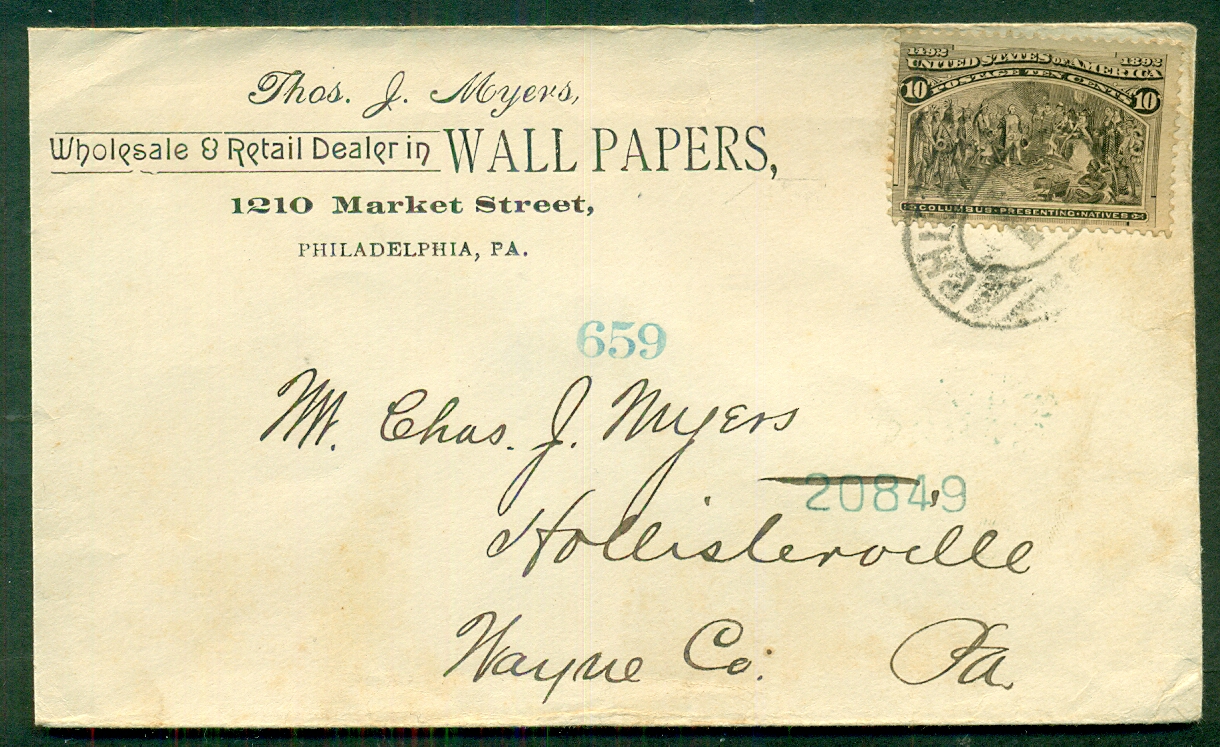 Thos. J. Myers,
Wholesale & Retail Dealer in WALL PAPERS,
1210 Market Street,
PHILADELPHIA, PA.
1492 1892
UNITED STATES OF AMERICA
POSTAGE TEN CENTS
10 10
COLUMBUS PRESENTING NATIVES
659
Mr. Chas. J. Myers
20849
Hollisterville
Wayne Co. Pa.